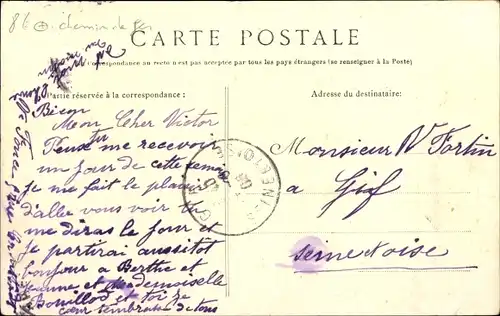 86 chemin de fer
CARTE POSTALE
La correspondance au recto n'est pas acceptée par tous les pays étrangers (se renseigner à la Poste)
Partie réservée à la correspondance :
Adresse du destinataire:
Bécon
Mon Cher Victor
Peux tu me recevoir
un jour de cette semaine
je me fait le plaisir
d'allé vous voir tu
me diras le jour et
je partirai aussitot
bonjour a Berthe et
et Mademoiselle
Bouillod et toi je
de tous
Monsieur V Fortin
a Gif
Seine et oise
SEINE-ET-OISE